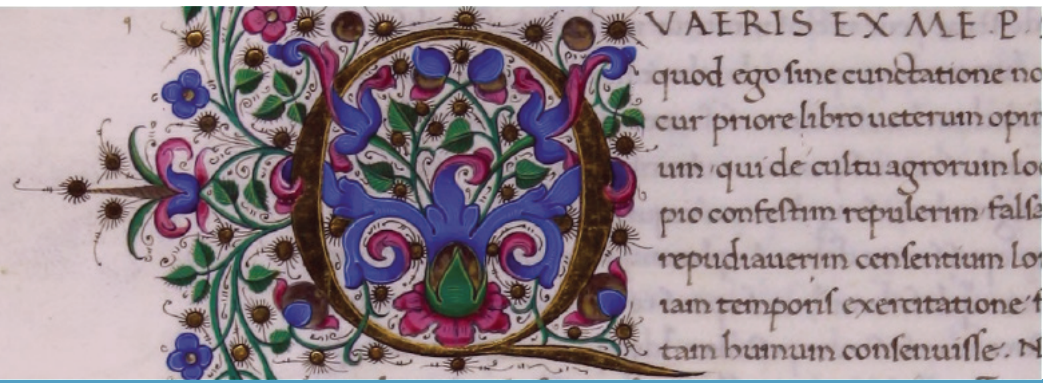 QVAERIS EX ME P
quod ego sine cunctatione no
cur priore libro ueterum opin
um qui de cultu agrorum loc
pio confestim repulerim falsa
repudiauerim censentium lon
iam temporis exercitatione f
tam humum consenuisse. N